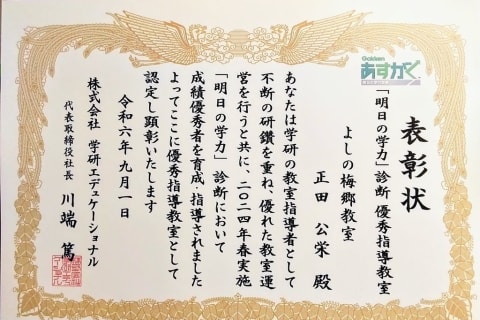 Gakken
あすがく
表彰状
「明日の学力」診断 優秀指導教室
よしの梅郷教室
正田 公栄 殿
あなたは学研の教室指導者として
不断の研鑽を重ね、優れた教室運
営を行うと共に、二〇二四年春実施
「明日の学力」診断において
成績優秀者を育成・指導されました
よってここに優秀指導教室として
認定し顕彰いたします
令和六年九月一日
株式会社 学研エデュケーショナル
代表取締役社長 川端 篤